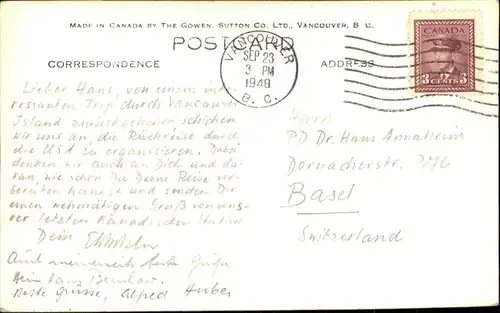 MADE IN CANADA BY THE GOWEN, SUTTON CO. LTD., VANCOUVER, B. C.
POSTCARD
CORRESPONDENCE
ADDRESS
VANCOUVER
SEP 23
3 PM
1948
B. C.
CANADA
3 CENTS 3
Lieber Hans, von einem inte-
ressanten Trip durch Vancouver
Island zurückgekehrt schicken
wir uns an, die Rückreise durch
die USA zu organisieren. Dabei
denken wir auch an Dich und da-
ran, wie schön Du Deine Reise vor-
bereiten kannst und senden Dir
einen wehmütigen Gruß von uns-
rer letzten Kanadischen Station
Dein
Auch meinerseits beste Grüße
Dein Hans
Beste Grüsse, Alfred Huber
Herrn
PD Dr. Hans Annaheim
Dornacherstr.
Basel
Switzerland